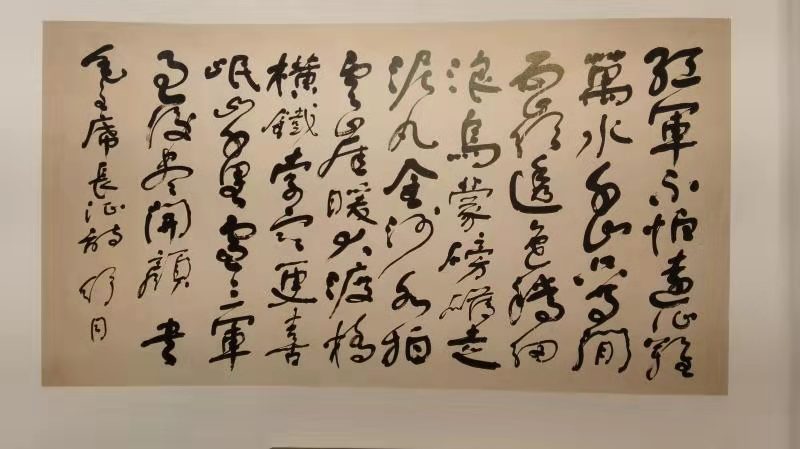 紅軍不怕遠征難
萬水千山只等閒
五嶺逶迤騰細
浪烏蒙磅礴走
泥丸金沙水拍
雲崖暖大渡橋
橫鐵索寒更喜
岷山千里雪三軍
過後盡開顏 書
毛主席長征詩 舒同